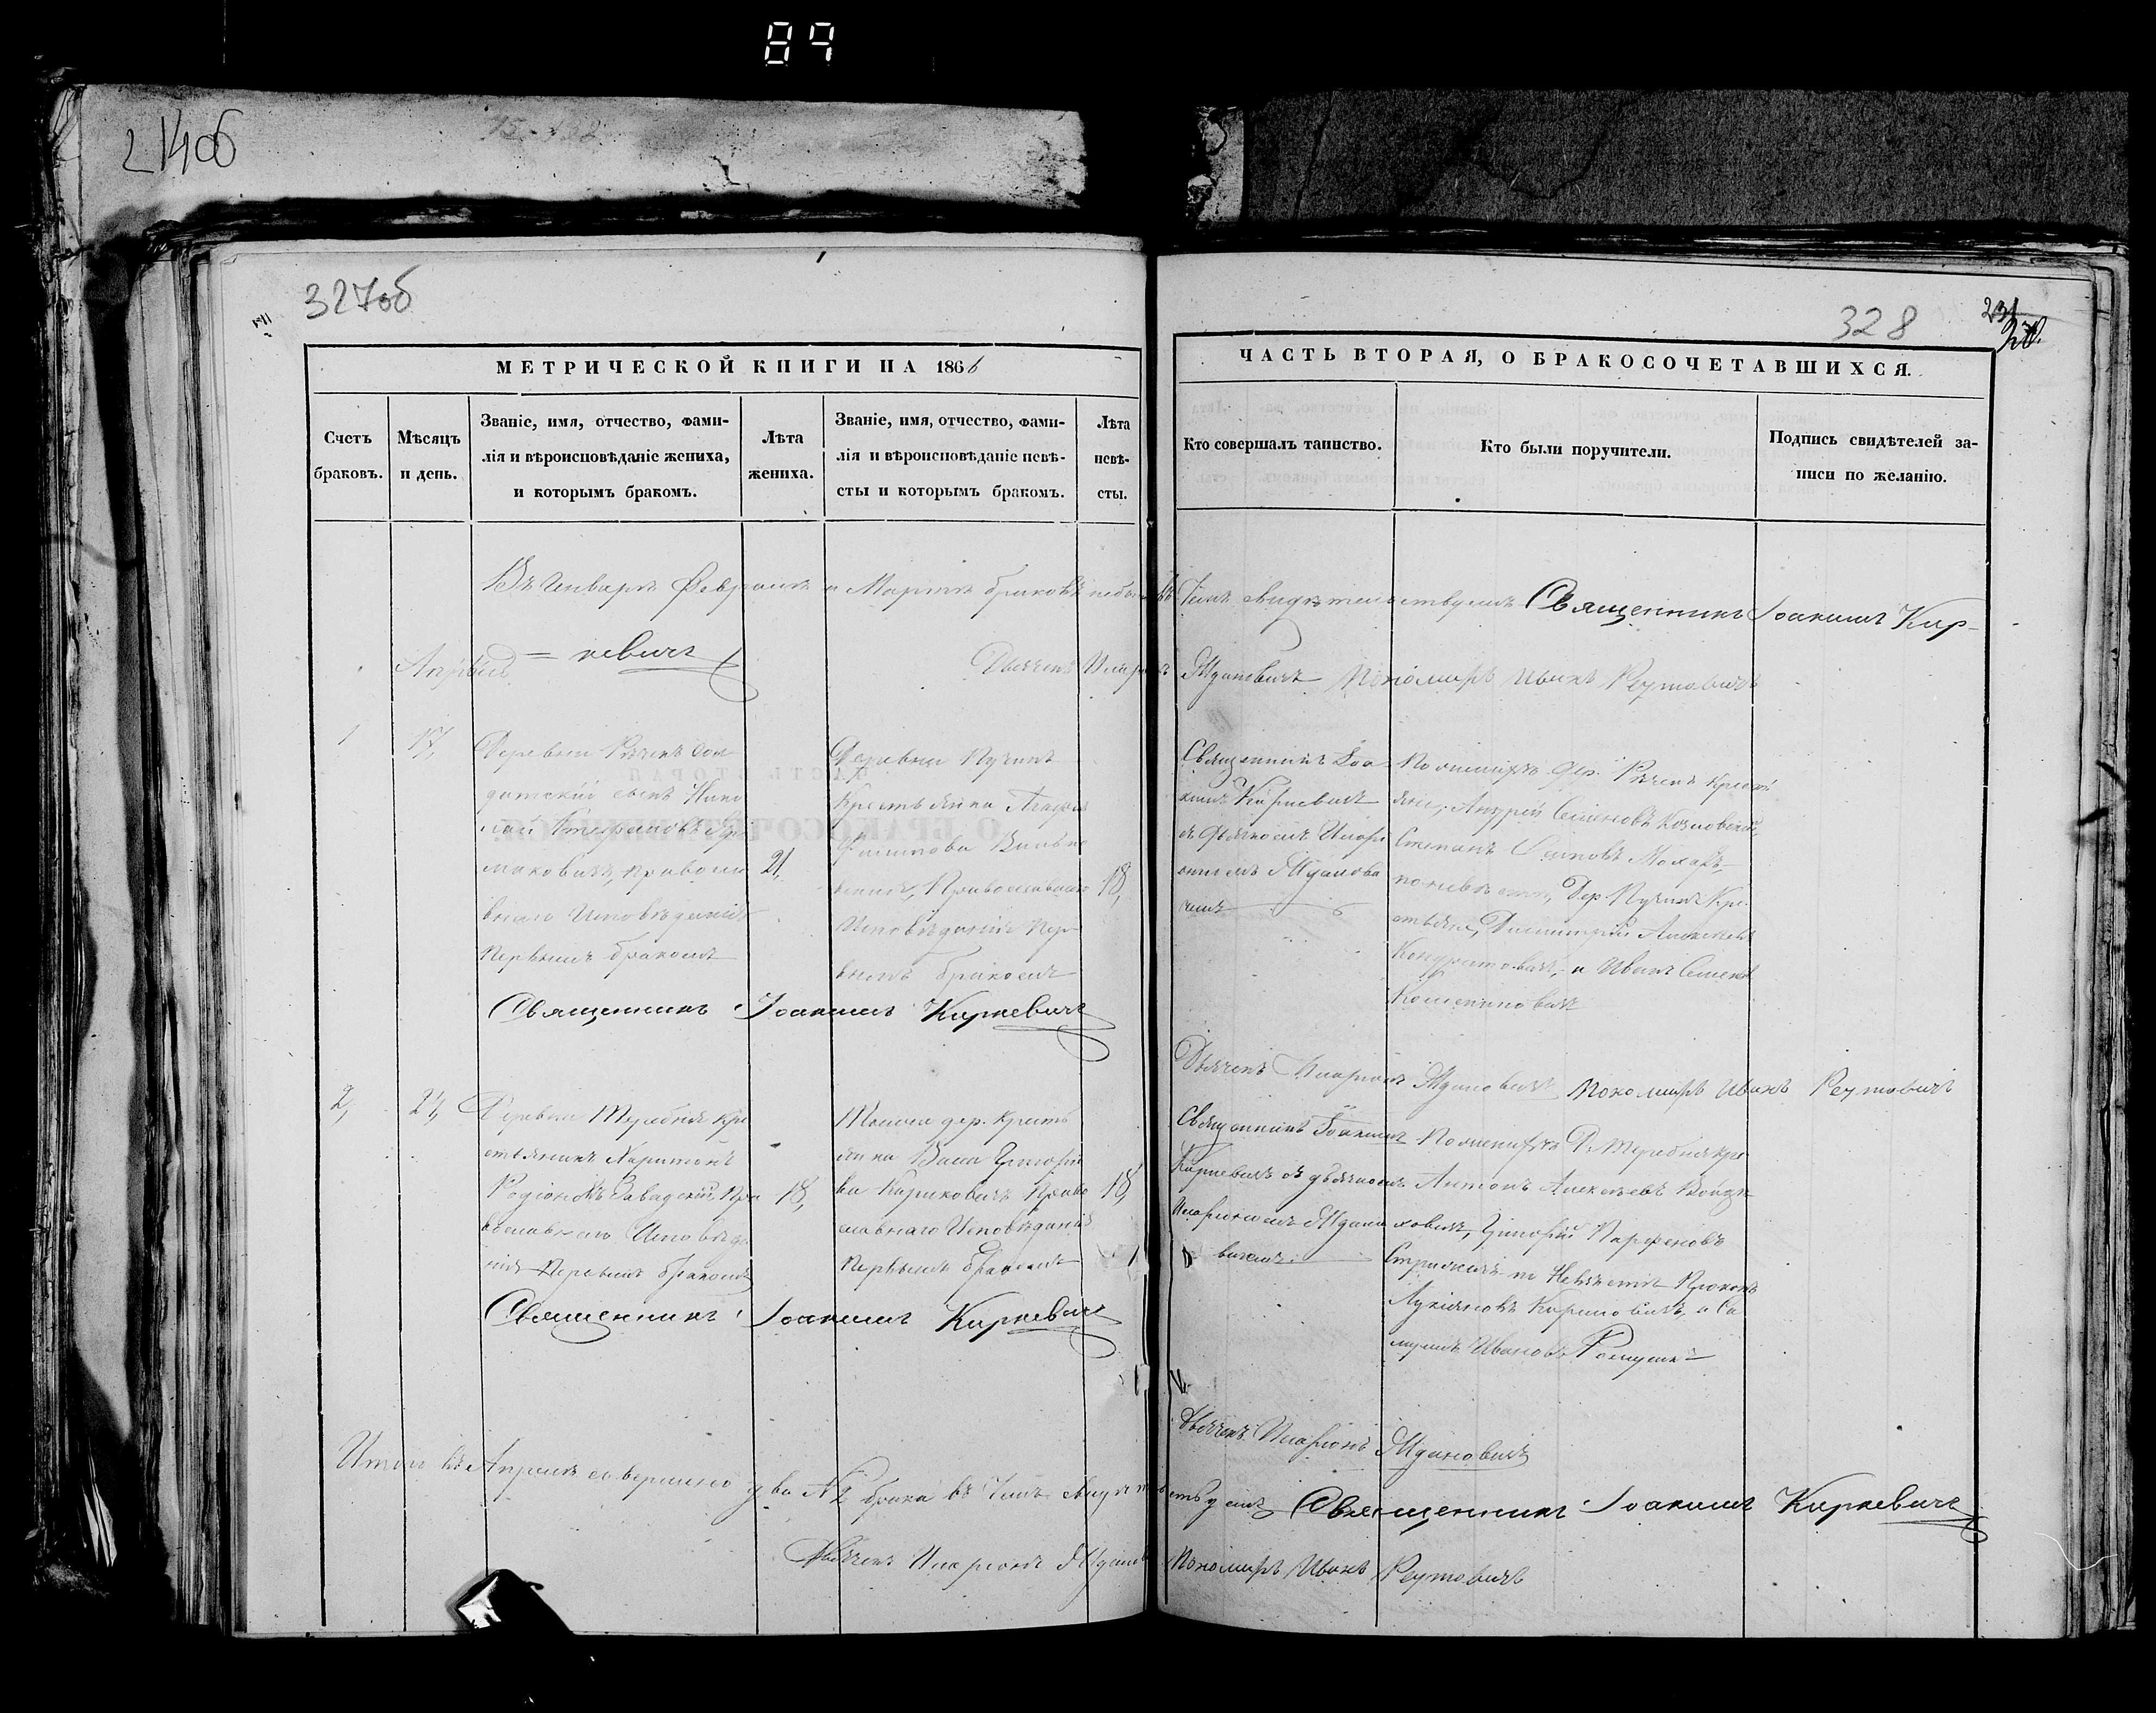 89
21406
327об
328
МЕТРИЧЕСКОЙ КНИГИ НА 1866
ЧАСТЬ ВТОРАЯ, О БРАКОСОЧЕТАВШИХСЯ.
Счетъ браковъ.
Мѣсяцъ и день.
Званіе, имя, отчество, фами-
лія и вѣроисповѣданіе жениха,
и которымъ бракомъ.
Лѣта
жениха.
Званіе, имя, отчество, фами-
лія и вѣроисповѣданіе невѣ-
сты и которымъ бракомъ.
Лѣта
невѣ-
сты.
Кто совершалъ таинство.
Кто были поручители.
Подпись свидѣтелей за-
писи по желанію.
Въ Январѣ Февралѣ и Мартѣ браковъ небыло въ Чемъ свидѣтельствуемъ Священникъ Іоакимъ Кир-
= кевичъ
Апрѣль
Дьячекъ Иларіонъ Ждановичъ Пономаръ Иванъ Реутовичъ
1
17,
Деревни Рѣчекъ Сол
датскій сынъ Нико
лай Стефановъ
маковичъ, правосла
внаго Исповѣданія
Первымъ бракомъ
21,
Деревни Пучинъ
Крестьянка
Филипова
Православнаго
Исповѣданія Пер-
вымъ бракомъ
18,
Священникъ Іоа
кимъ Киркевичъ
съ Дьячкомъ Илари
ономъ Жданови
чемъ
По женихѣ дер. Рѣчекъ Кресть
яне, Андрей Семеновъ Козловскій,
Степанъ
по невѣстѣ, Дер. Пучинъ Кре
стьяне, Димитрій Алексѣевъ
Кондратовичъ, и Иванъ Семеновъ
Священникъ Іоакимъ Киркевичъ
Дьячекъ Иларіонъ Ждановичъ Пономаръ Иванъ Реутовичъ
2,
24,
Деревни Теребня кре
стьянинъ Харитонъ
Родіоновъ Завадскій, Пра
вославнаго Исповѣда
нія Первымъ бракомъ
18,
Тоежъ дер. Кресть
янка Васа Григорье
ва Православнаго Исповѣданія
Первымъ бракомъ
18,
Священникъ Іоакимъ
Киркевичъ съ дьячкомъ
Иларіономъ Ждано
вичемъ.
По женихѣ Д. Теребня кре
Антонъ Алексѣевъ
Григорій Парфеновъ
по Невѣстѣ Прокопъ
Лукіяновъ и Са
муилъ Ивановъ
Священникъ Іоакимъ Киркевичъ
Дьячекъ Иларіонъ Ждановичъ
Итого въ Апрѣлѣ совершено два № 2 брака въ Чемъ свидѣтельствуемъ Священникъ Іоакимъ Киркевичъ
Дьячекъ Иларіонъ Ждановичъ Пономаръ Иванъ Реутовичъ